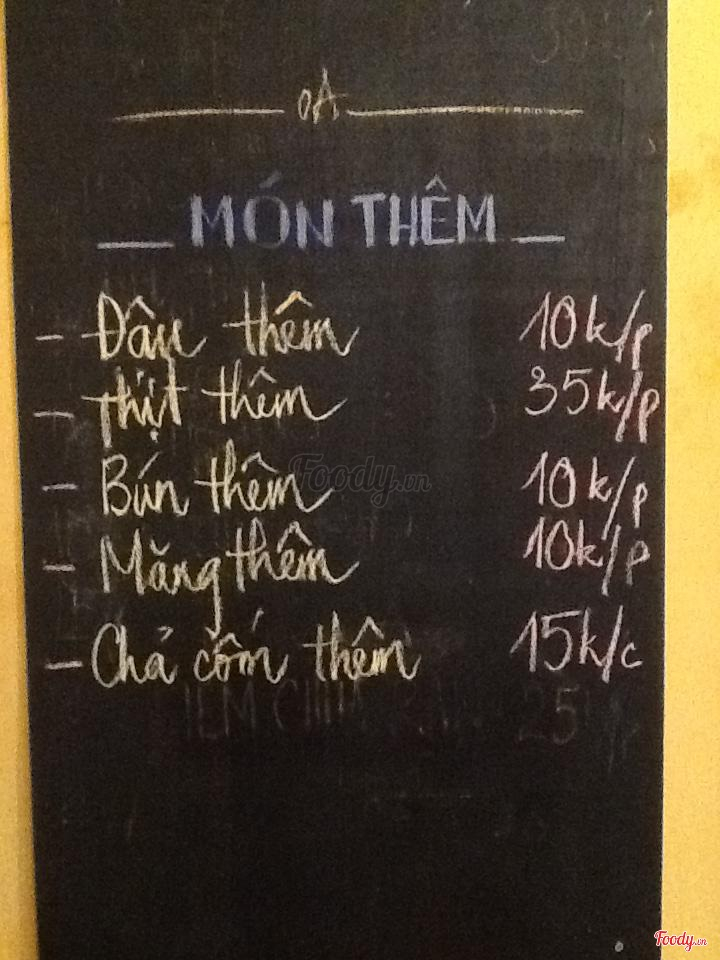 MÓN THÊM
- Đậu thêm 10k/p
- thịt thêm 35k/p
- Bún thêm 10k/p
- Măng thêm 10k/p
- Chả cốm thêm 15k/c
Foody.vn
Foody.vn